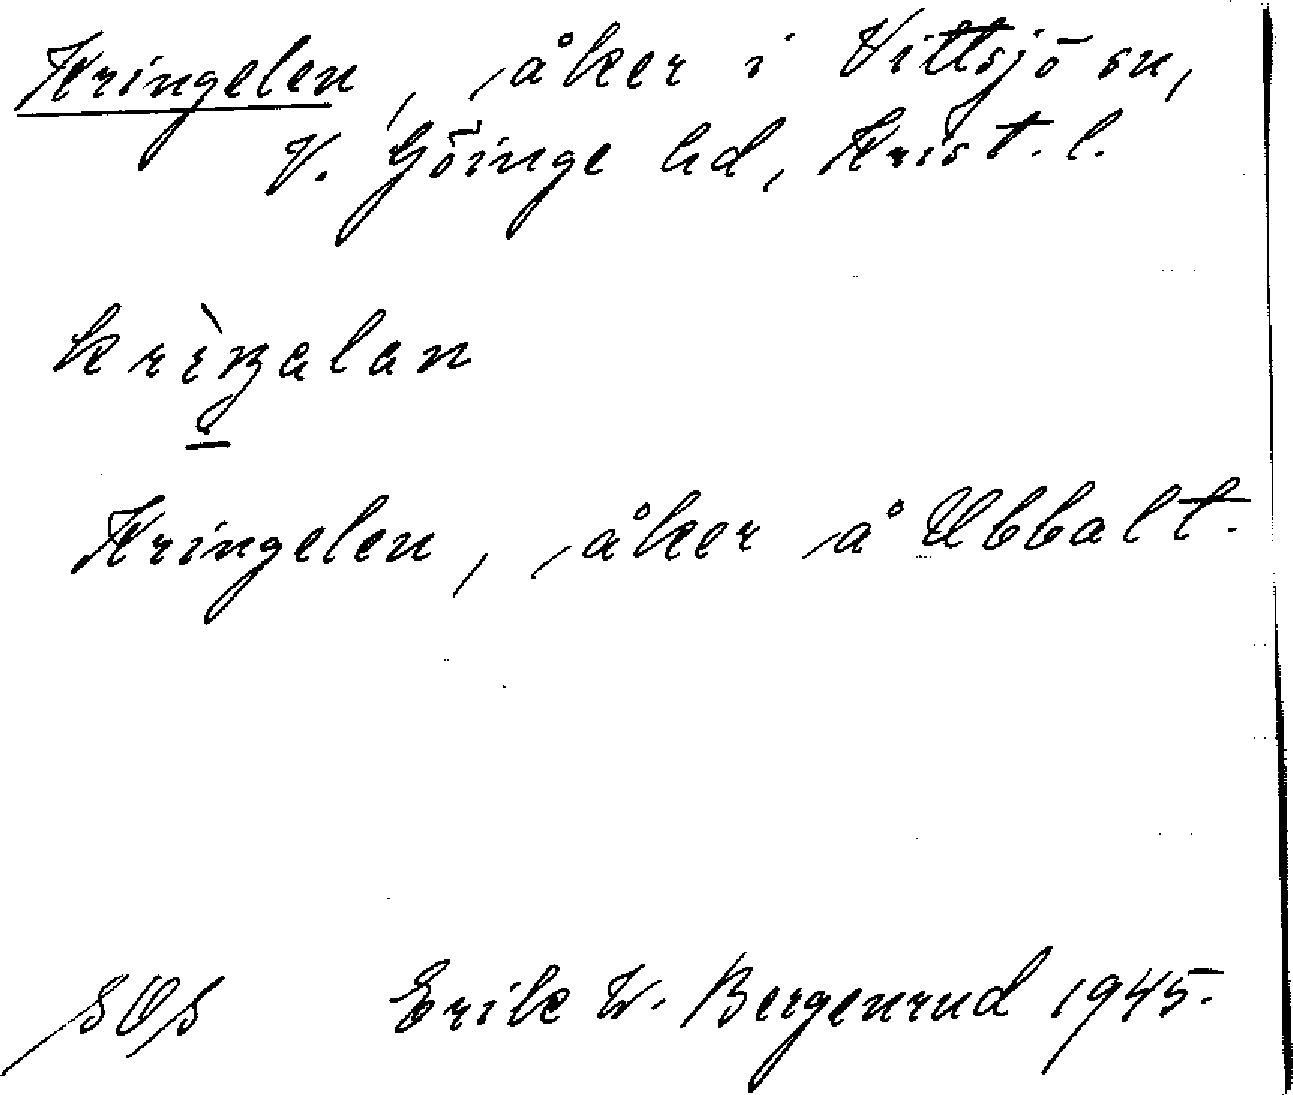 Kringelen, åker i Vittsjö sn,
V. Göinge hd, Krist. l.
krìŋalan
Kringelen, åker å Ubbalt.
SOS Erik W. Bergenrud 1945.